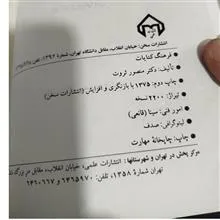 انتشارات سخن: خیابان انقلاب، مقابل دانشگاه تهران، شمارهٔ ۱۳۹۲،
فرهنگ کنایات
تألیف: دکتر منصور ثروت
چاپ دوم: ۱۳۷۵ با بازنگری و افزایش (انتشارات سخن)
تیراژ: ۲۲۰۰ نسخه
امور فنی: سینا (قانعی)
لیتوگرافی: صدف
چاپ: چاپخانهٔ مهارت
مرکز پخش در تهران و شهرستانها: انتشارات علمی، خیابان انقلاب، مقابل در بزرگ
تهران شمارهٔ ۱۳۵۸، تلفن: ۶۴۶۵۹۷۰ و ۶۴۶۰۶۶۷